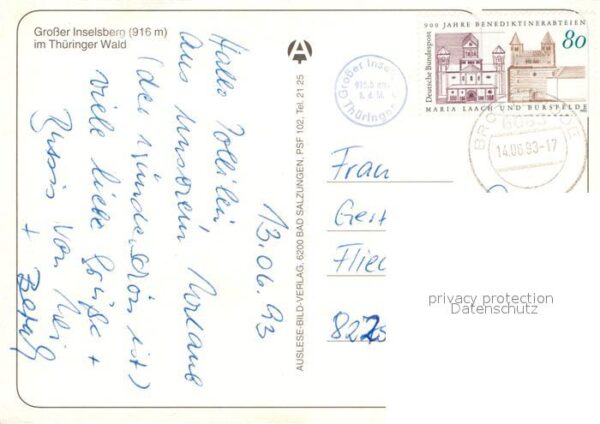 Großer Inselsberg (916 m)
im Thüringer Wald
13.06.93
Hallo
aus unserem Urlaub
(der wunderschön ist)
viele liebe Grüße +
von
+
AUSLESE-BILD-VERLAG, 6200 BAD SALZUNGEN, PSF 102, Tel. 21 25
Großer Insel
Thüringen
900 JAHRE BENEDIKTINERABTEIEN
80
Deutsche Bundespost
MARIA LAACH UND BURSFELDE
14.06.93-17
Frau
Ger
Flie
822
privacy protection
Datenschutz